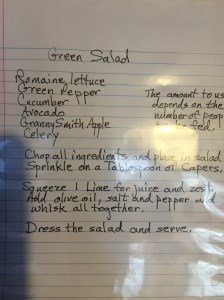 Green Salad
Romaine lettuce
Green Pepper
Cucumber
Avocado
Granny Smith Apple
Celery
The amount to us
depends on the
number of peop
to be fed.
Chop all ingredients and place in salad
Sprinkle on a Tablespoon of Capers,
Squeeze 1 Lime for juice and zest.
Add olive oil, salt and pepper and
whisk all together.
Dress the salad and serve.